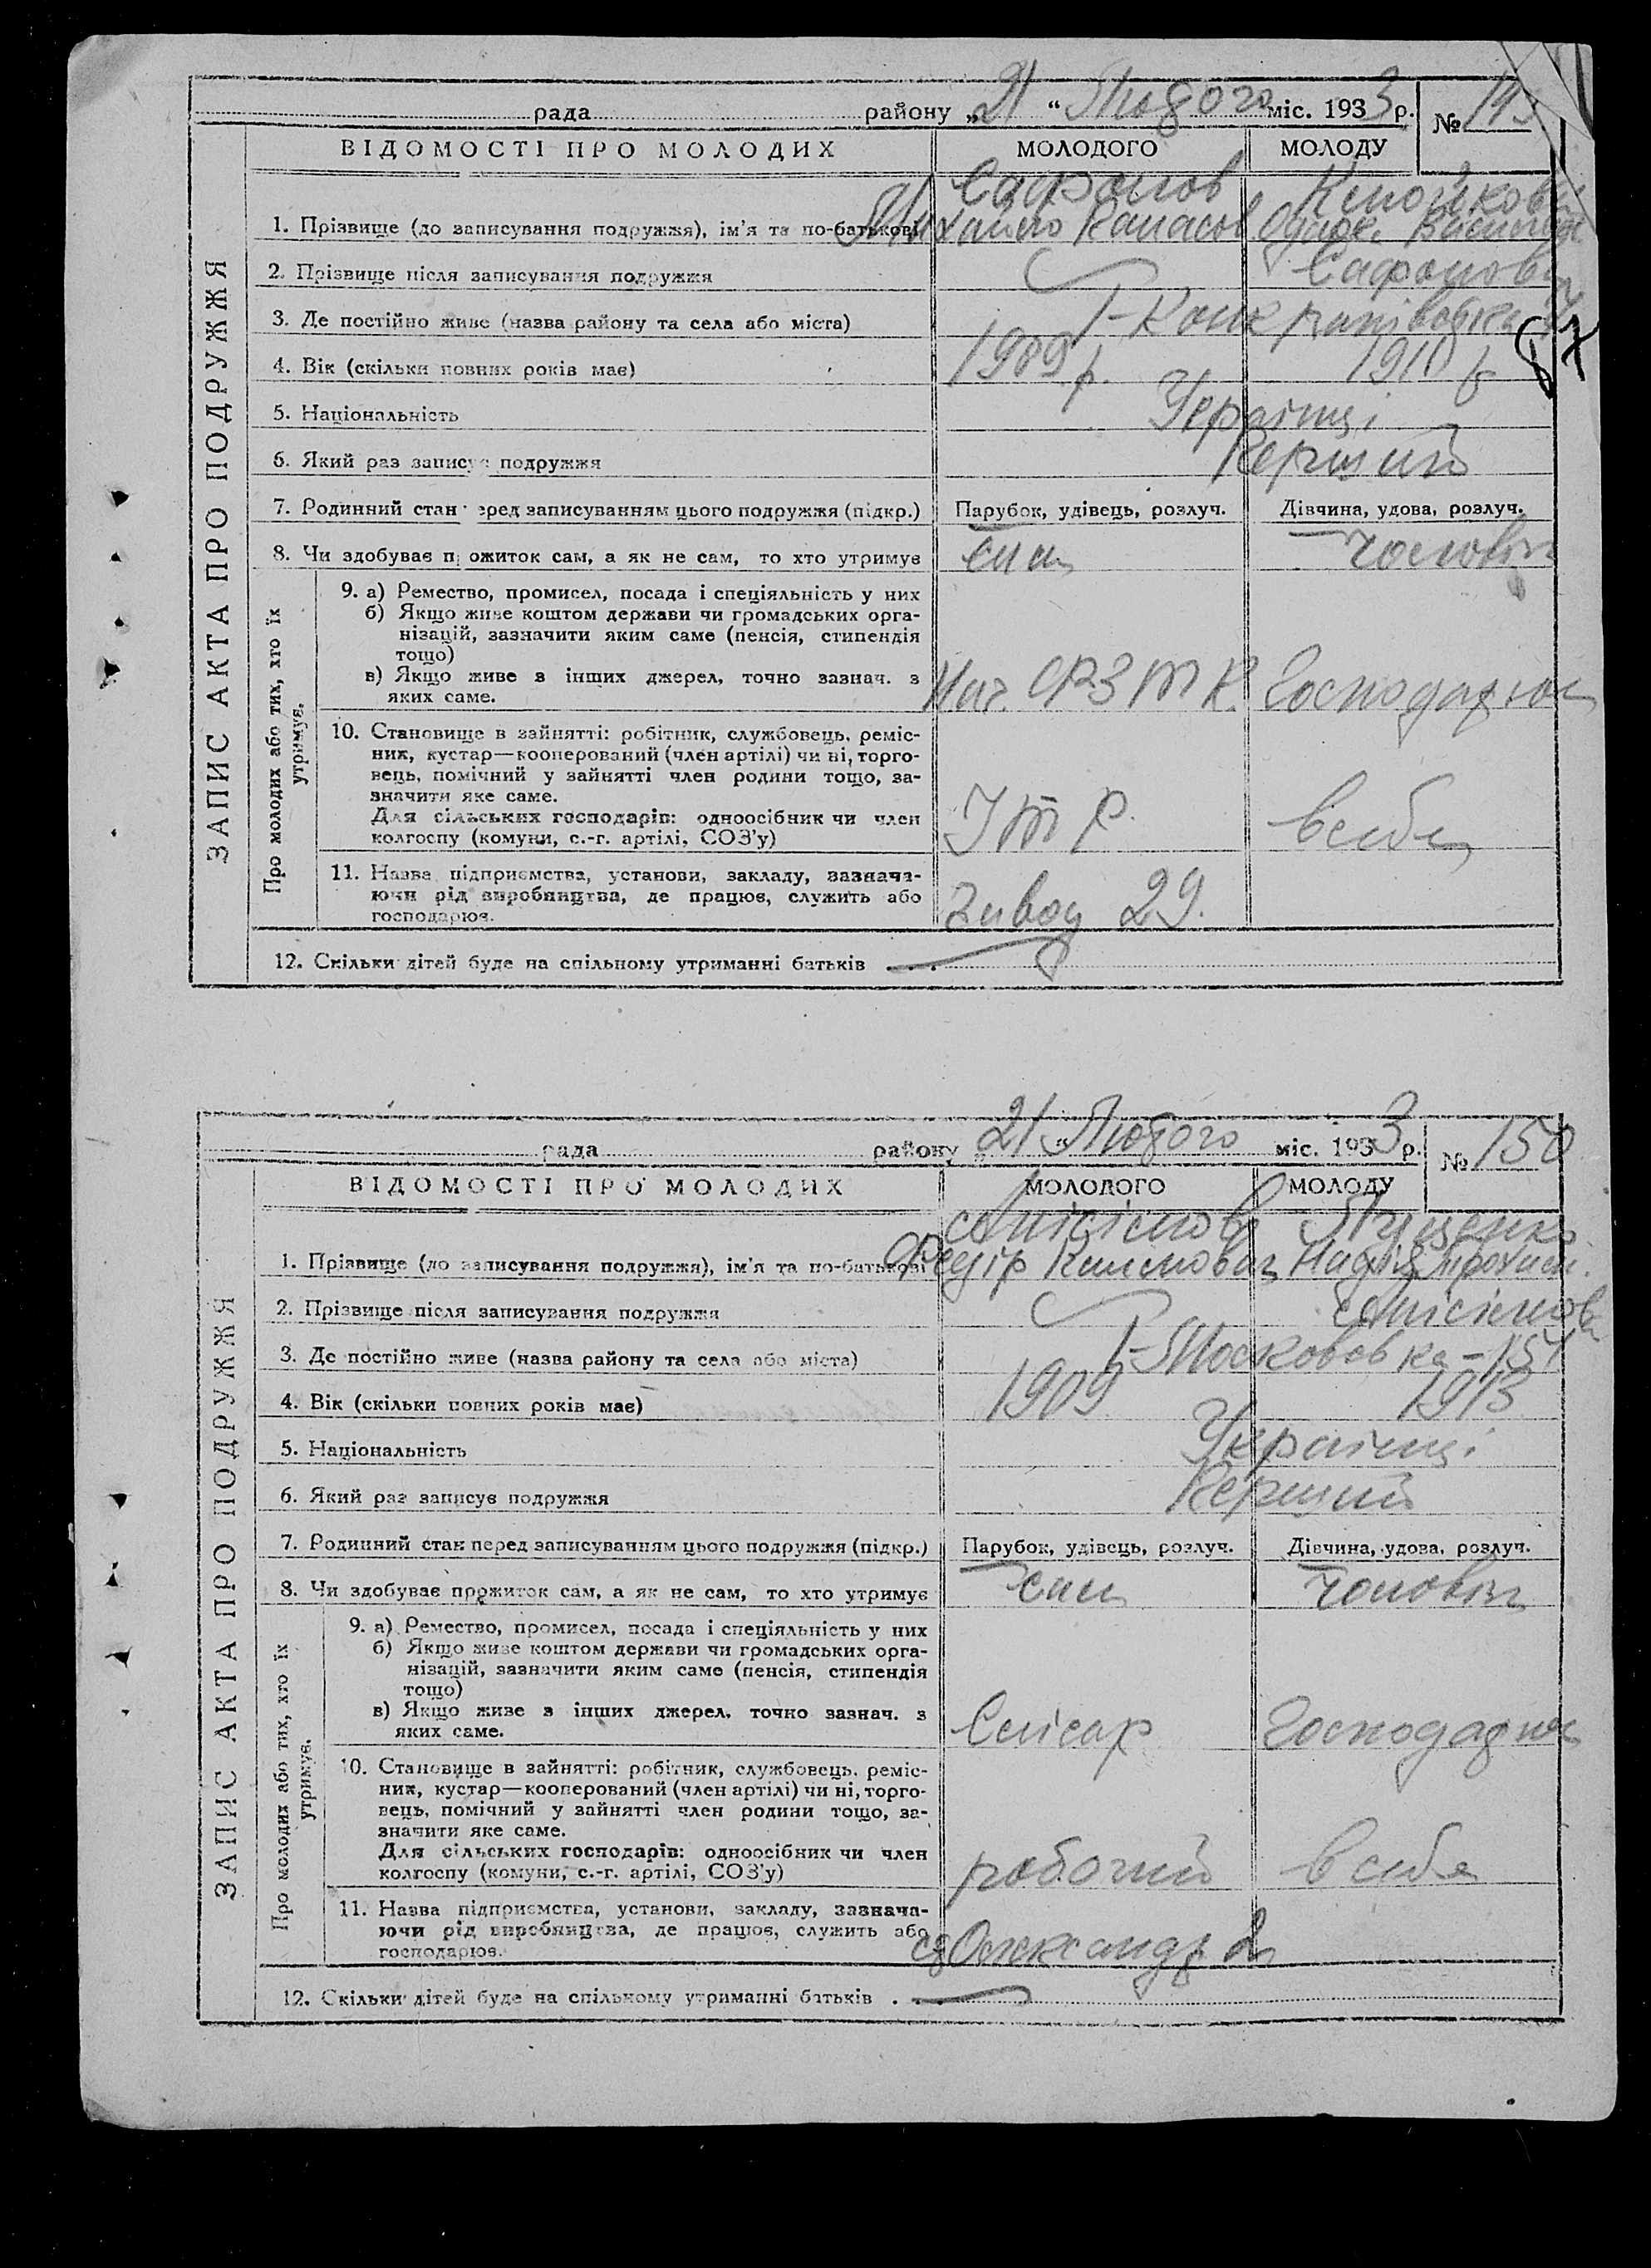 рада района „21“ Лютого міс. 1933 р. №
ВІДОМОСТІ ПРО МОЛОДИХ МОЛОДОГО МОЛОДУ
ЗАПИС АКТА ПРО ПОДРУЖЖЯ
Сафонов
1. Прізвище (до записування подружжя), ім'я та по-батькові Михайло Одарка
2. Прізвище після записування подружжя Сафонова
3. Де постійно живе (назва району та села або міста)
4. Вік (скільки повних років має) 1909 р. 1910 р
5. Національність Українці
6. Який раз записує подружжя Перший
7. Родинний стан перед записуванням цього подружжя (підкр.) Парубок, удівець, розлуч. Дівчина, удова, розлуч.
8. Чи здобуває прожиток сам, а як не сам, то хто утримує сам чоловік
Про молодих або тих, хто їх утримує.
9. а) Ремество, промисел, посада і спеціяльність у них
б) Якщо живе коштом держави чи громадських орга-
нізацій, зазначити яким саме (пенсія, стипендія
тощо)
в) Якщо живе з інших джерел, точно зазнач. з
яких саме. Нач. Господарює
10. Становище в зайнятті: робітник, службовець, реміс-
ник, кустар—кооперований (член артілі) чи ні, торго-
вець, помічний у зайнятті член родини тощо, за-
значити яке саме.
Для сільських господарів: одноосібник чи член
колгоспу (комуни, с.-г. артілі, СОЗ'у) ІТР. в себе
11. Назва підприємства, установи, закладу, зазнача-
ючи рід виробництва, де працює, служить або
господарює. Завод 29.
12. Скільки дітей буде на спільному утриманні батьків . . .
рада району „21“ Лютого міс. 1933 р. № 150
ВІДОМОСТІ ПРО МОЛОДИХ МОЛОДОГО МОЛОДУ
ЗАПИС АКТА ПРО ПОДРУЖЖЯ
Анісімов
1. Прізвище (до записування подружжя), ім'я та по-батькові Федір Надія
2. Прізвище після записування подружжя Анісімова
3. Де постійно живе (назва району та села або міста)
4. Вік (скільки повних років має) 1909 1913
5. Національність Українці
6. Який раз записує подружжя Перший
7. Родинний стан перед записуванням цього подружжя (підкр.) Парубок, удівець, розлуч. Дівчина, удова, розлуч.
8. Чи здобуває прожиток сам, а як не сам, то хто утримує сам чоловік
Про молодих або тих, хто їх утримує.
9. а) Ремество, промисел, посада і спеціяльність у них
б) Якщо живе коштом держави чи громадських орга-
нізацій, зазначити яким саме (пенсія, стипендія
тощо)
в) Якщо живе з інших джерел, точно зазнач. з
яких саме. Слісар Господарює
10. Становище в зайнятті: робітник, службовець, реміс-
ник, кустар—кооперований (член артілі) чи ні, торго-
вець, помічний у зайнятті член родини тощо, за-
значити яке саме.
Для сільських господарів: одноосібник чи член
колгоспу (комуни, с.-г. артілі, СОЗ'у) робочий в себе
11. Назва підприємства, установи, закладу, зазнача-
ючи рід виробництва, де працює, служить або
господарює.
12. Скільки дітей буде на спільному утриманні батьків . . .